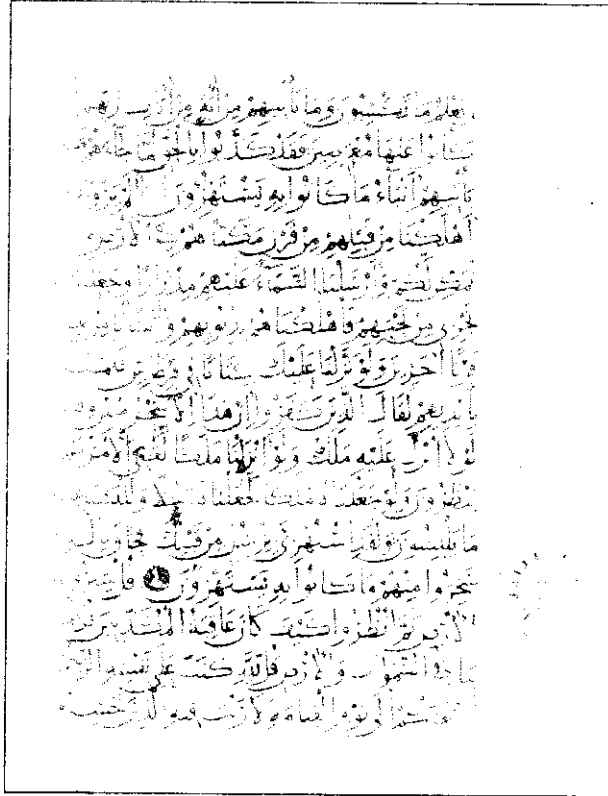 يعلم ما تكسبون وما تأتيهم من آية من آيات ربهم
كانوا عنها معرضين فقد كذبوا بالحق لما جاءهم
يأتيهم أنباء ما كانوا به يستهزؤن ألم يروا
أهلكنا من قبلهم من قرن مكناهم في الأرض
نمكن لكم وأرسلنا السماء عليهم مدرارا وجعلنا
تجري من تحتهم فأهلكناهم بذنوبهم وأنشأنا من
قرنا آخرين ولو نزلنا عليك كتابا في قرطاس
بأيديهم لقال الذين كفروا إن هذا إلا سحر مبين
لولا أنزل عليه ملك ولو أنزلنا ملكا لقضي الأمر
ينظرون ولو جعلناه ملكا لجعلناه رجلا وللبسنا
ما يلبسون ولقد استهزئ برسل من قبلك فحاق
سخروا منهم ما كانوا به يستهزؤن قل سيروا
الأرض ثم انظروا كيف كان عاقبة المكذبين
ما في السموات والأرض قل لله كتب على نفسه
ليجمعنكم إلى يوم القيامة لا ريب فيه الذين خسروا